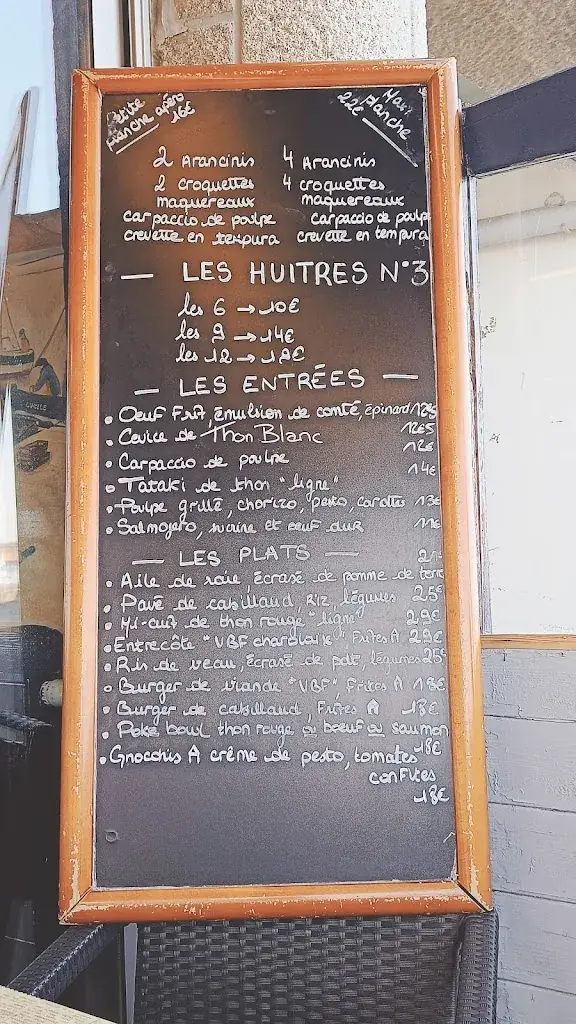 Petite planche apéro 16€
Maxi planche 22€
2 Arancinis
2 croquettes maquereaux
carpaccio de poulpe
crevette en tempura
4 Arancinis
4 croquettes maquereaux
carpaccio de poulpe
crevette en tempura
— LES HUITRES N°3
les 6 → 10€
les 9 → 14€
les 12 → 18€
— LES ENTRÉES —
• Oeuf Frit, émulsion de comté, épinard 12€5
• Cevice de Thon Blanc 12€5
• Carpaccio de poulpe 12€
• Tataki de thon "ligne" 14€
• Poulpe grillé, chorizo, pesto, carottes 13€
• Salmojero, sucrine et oeuf dur 11€
— LES PLATS —
• Aile de raie, écrasé de pomme de terre
• Pavé de cabillaud, Riz, légumes 25€
• Mi-cuit de thon rouge "ligne" 29€
• Entrecôte "VBF charolaise" Frites A 29€
• Ris de veau, écrasé de pdt, légumes 25€
• Burger de viande "VBF", Frites A 18€
• Burger de cabillaud, Frites A 18€
• Poke bowl thon rouge ou boeuf ou saumon 18€
• Gnocchis A crême de pesto, tomates
confites
18€